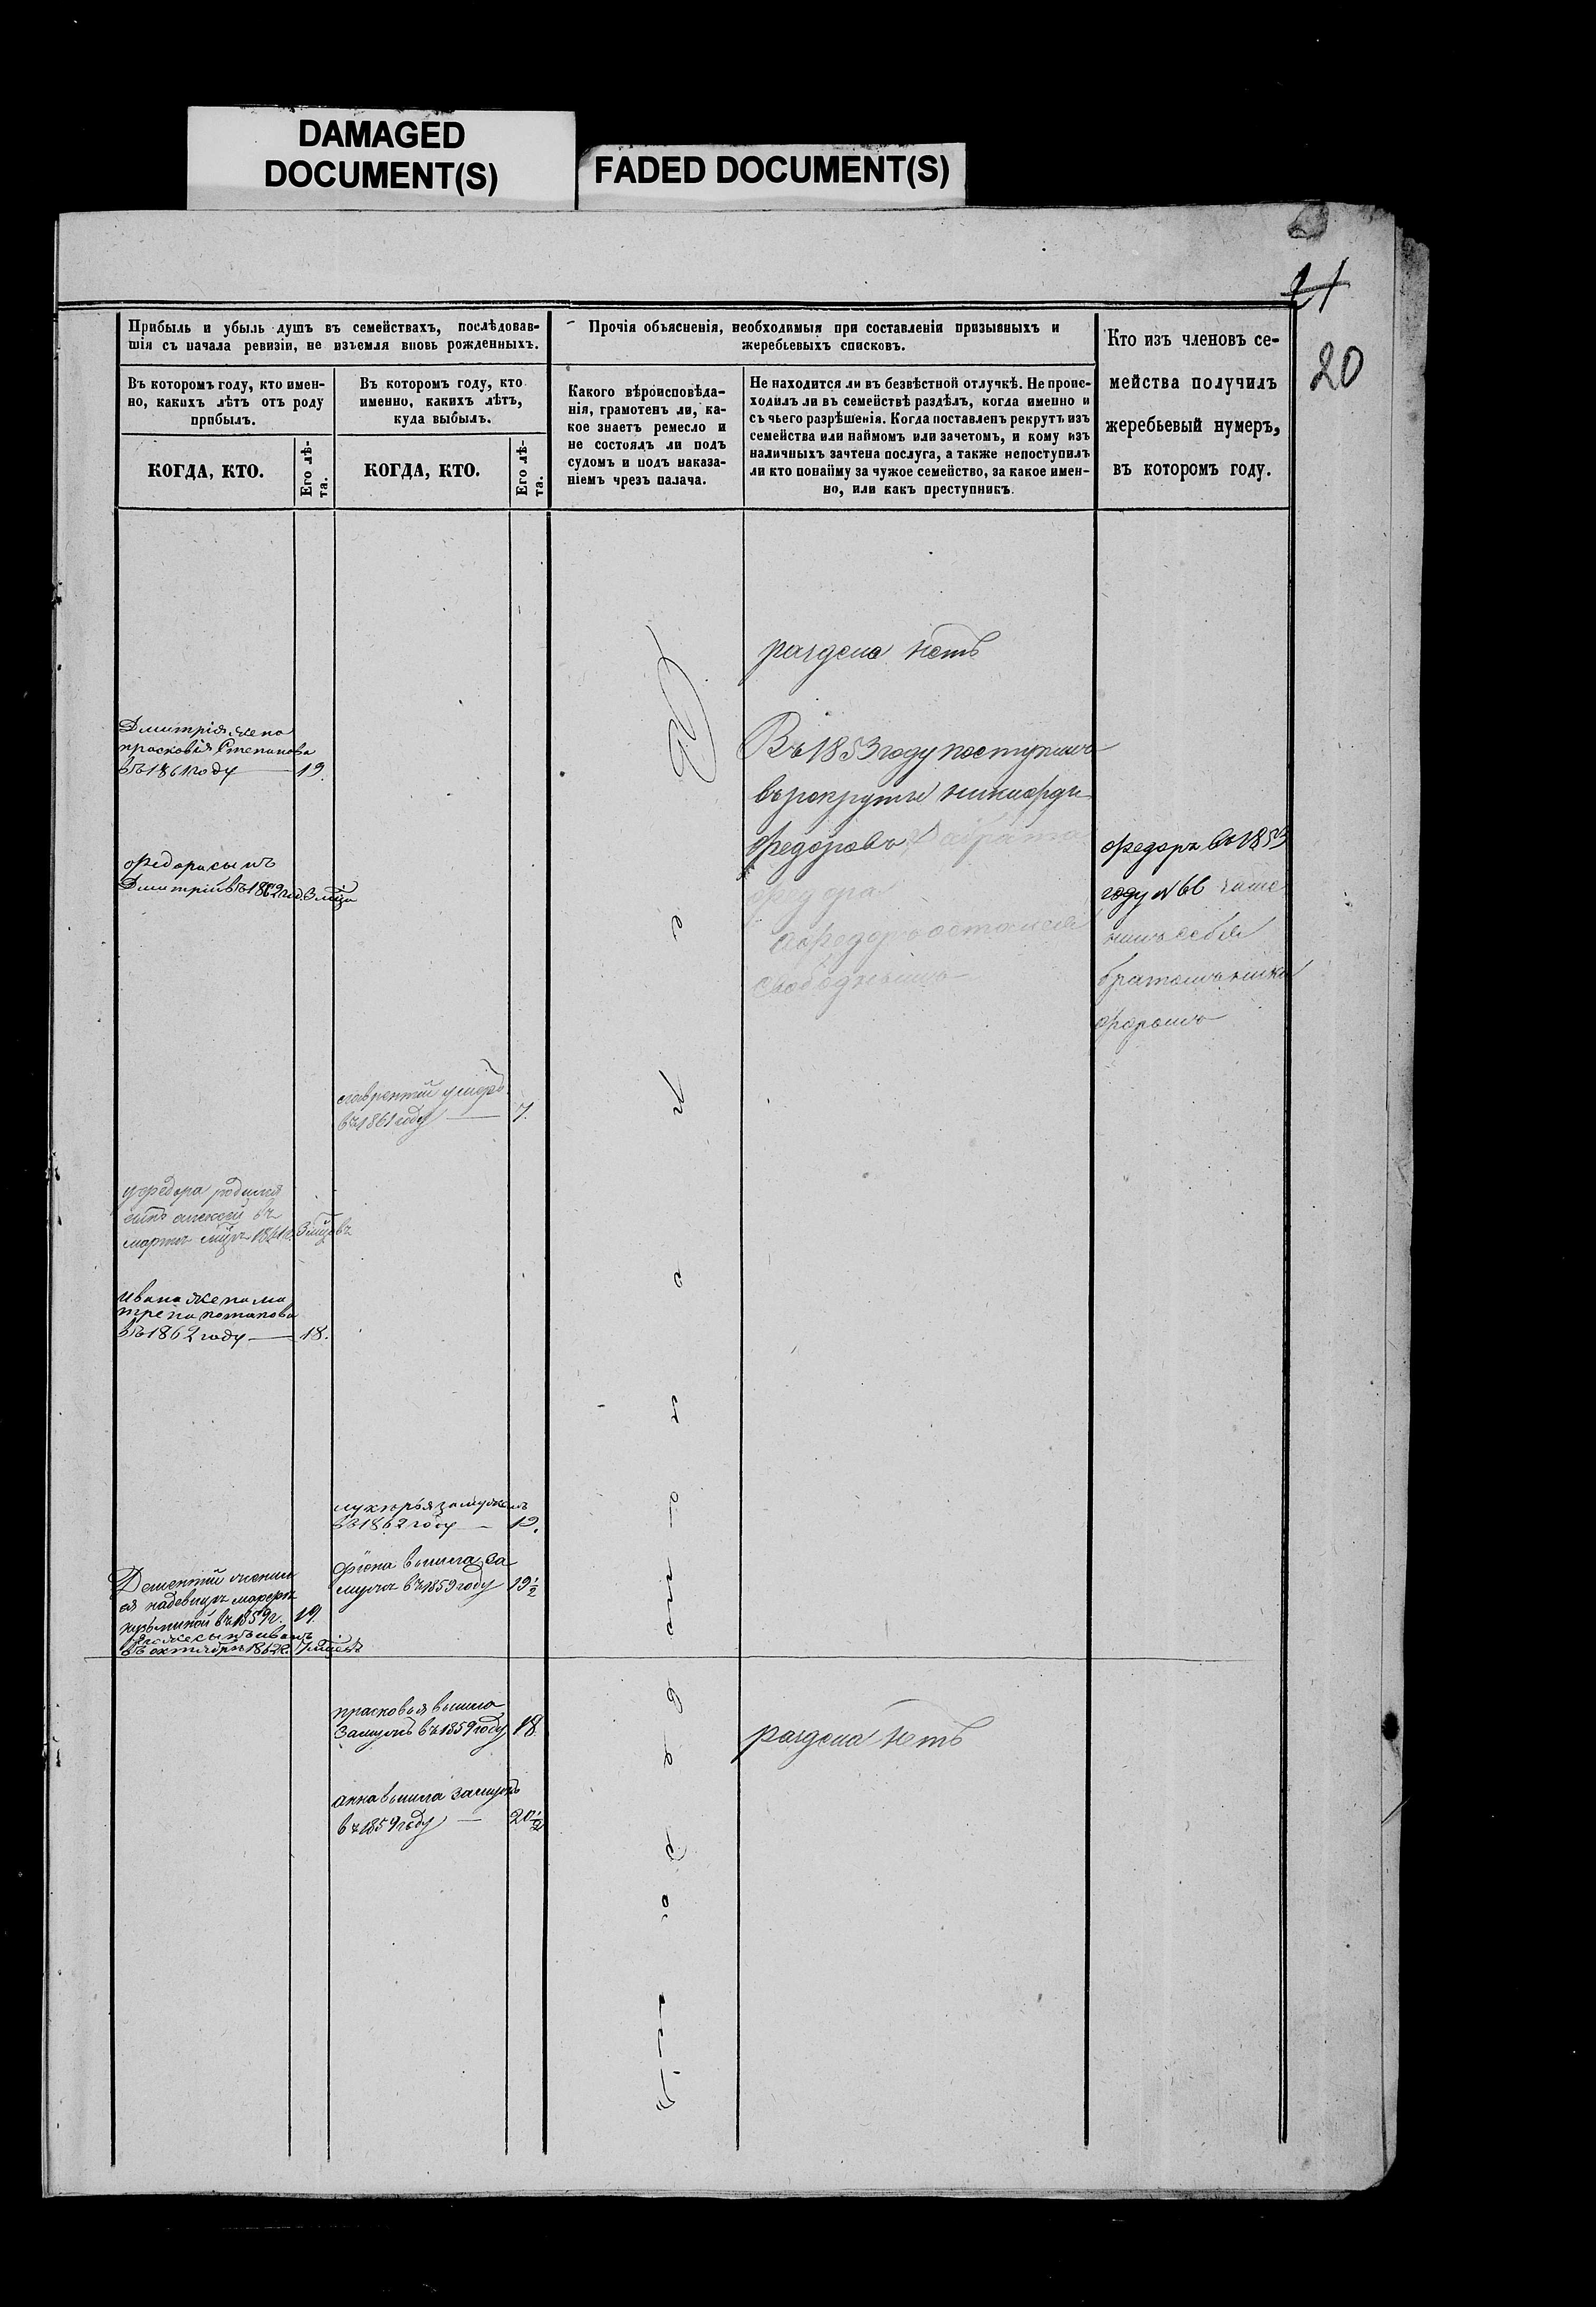 DAMAGED
DOCUMENT(S)
FADED DOCUMENT(S)
21
20
Прибыль и убыль душъ въ семействахъ, послѣдовав-
шія съ начала ревизіи, не изъемля вновь рожденныхъ.
Въ которомъ году, кто имен-
но, какихъ лѣтъ отъ роду
прибылъ.
КОГДА, КТО.
Его лѣ-
та.
Въ которомъ году, кто
именно, какихъ лѣтъ,
куда выбылъ.
КОГДА, КТО.
Его лѣ-
та.
Прочія объясненія, необходимыя при составленіи призывныхъ и
жеребьевыхъ списковъ.
Какого вѣроисповѣда-
нія, грамотенъ ли, ка-
кое знаетъ ремесло и
не состоялъ ли подъ
судомъ и подъ наказа-
ніемъ чрезъ палача.
Не находится ли въ безвѣстной отлучкѣ. Не проис-
ходилъ ли въ семействѣ раздѣлъ, когда именно и
съ чьего разрѣшенія. Когда поставленъ рекрутъ изъ
семейства или наймомъ или зачетомъ, и кому изъ
наличныхъ зачтена послуга, а также непоступилъ
ли кто понайму за чужое семейство, за какое имен-
но, или какъ преступникъ.
Кто изъ членовъ се-
мейства получилъ
жеребьевый нумеръ,
въ которомъ году.
Дмитрія жена
прасковія Степанова
въ 1861 году — 19.
федора сынъ
Дмитрій въ 1862 год. 3 мца
у федора родился
сынъ алексей въ
марте мцъ 3 мцовъ
Ивана жена ма
трена потапова
въ 1862 году — 18.
Дементій женил
ся на девице марфе
кузьминой въ 1859 г. 19.
сынъ иванъ
въ октябре 1862 г.
лаврентій умеръ
въ 1861 году — 7.
лукерья замужемъ
въ 1862 году — 19.
фіона вышла за
мужъ въ 1859 году 19½
прасковья вышла
Замужъ въ 1859 году 18
анна вышла замужъ
въ 1859 году — 20½
раздела нетъ
Въ 1853 году поступилъ
въ рекруты никифоръ
федоровъ За брата
федора
а федоръ остался
свободнымъ
раздела нетъ
федоръ въ 1853
году № 66 заме
нилъ себя
братомъ ники
форомъ